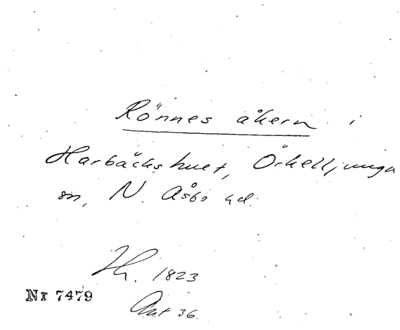 Rönnes åkern i
Harbäckshult, Örkelljunga
sn, N. Åsbo hd.
1823
Nr 7479
Akt 36.